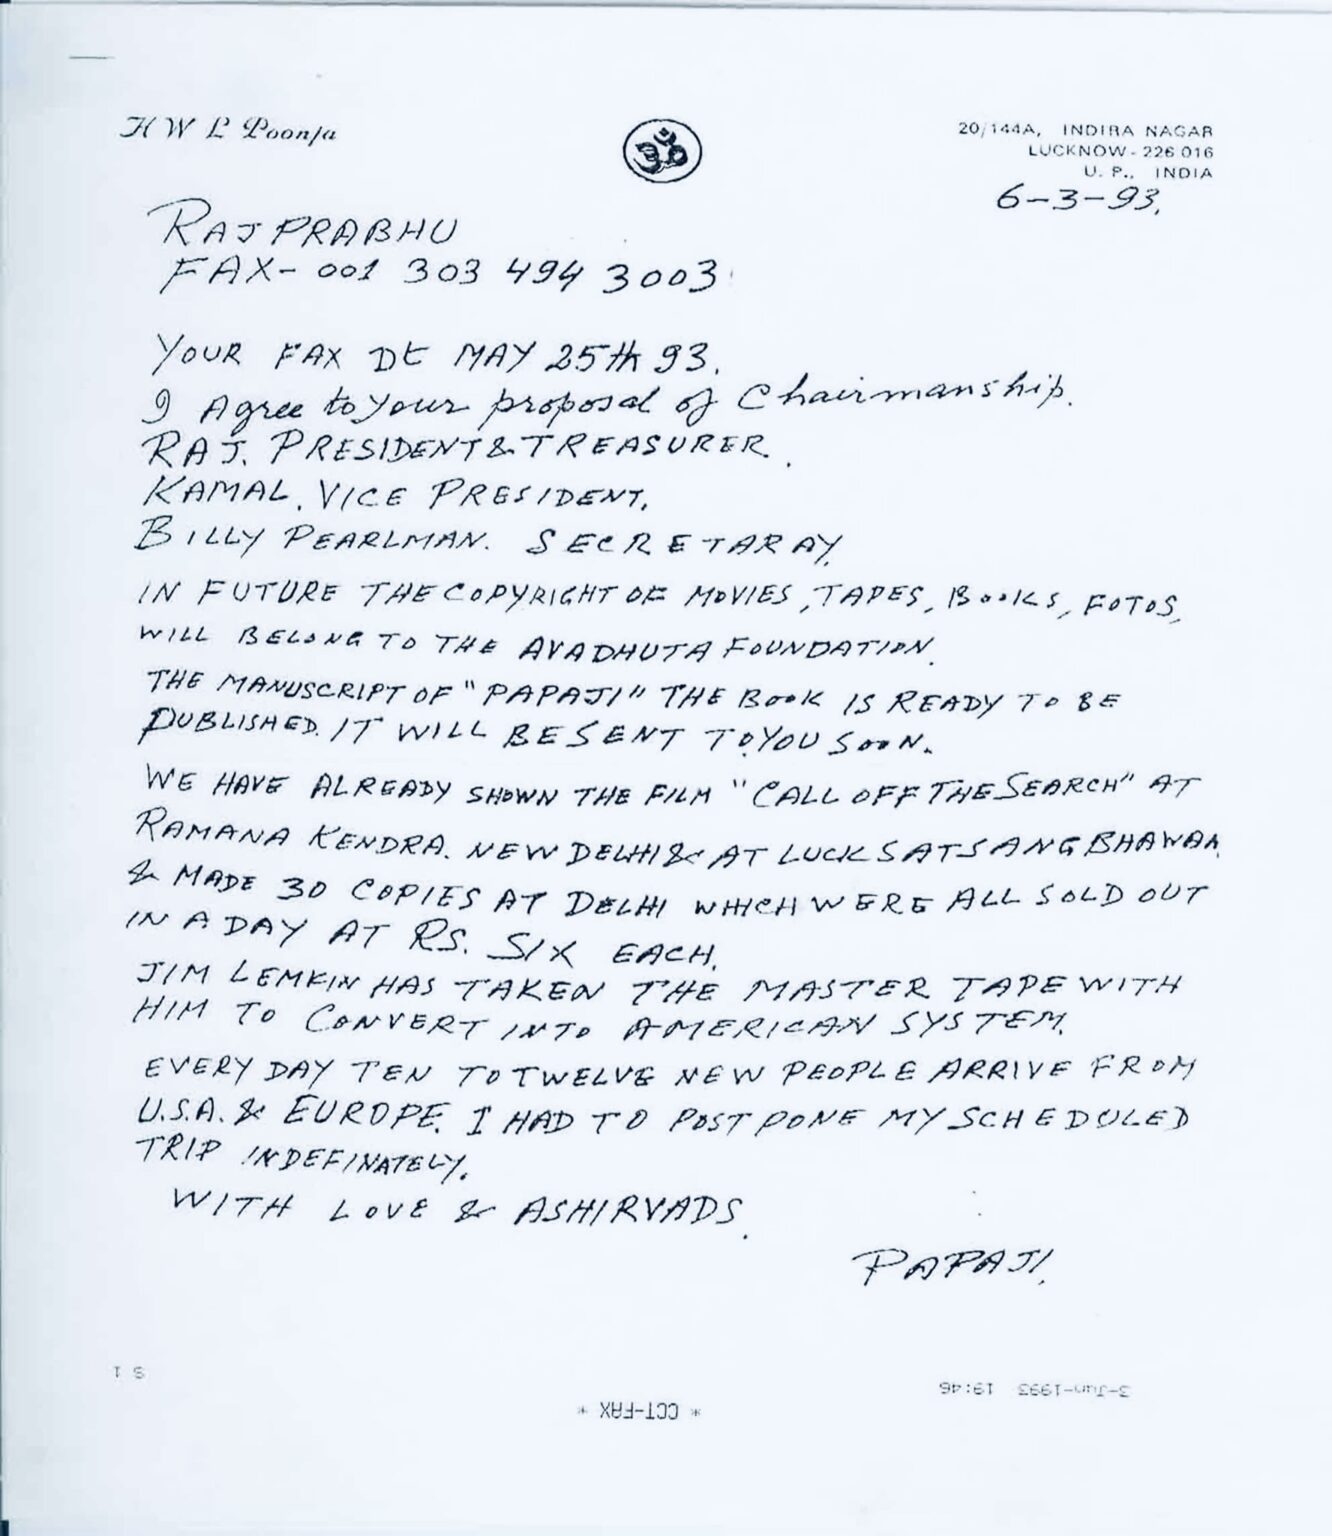 H W L Poonja
ॐ
20/144A, INDIRA NAGAR
LUCKNOW - 226 016
U. P., INDIA
6-3-93.
RAJ PRABHU
FAX- 001 303 494 3003
YOUR FAX Dt MAY 25th 93.
I Agree to your proposal of Chairmanship.
RAJ. PRESIDENT & TREASURER.
KAMAL. VICE PRESIDENT.
BILLY PEARLMAN. SECRETARAY.
IN FUTURE THE COPYRIGHT OF MOVIES, TAPES, BOOKS, FOTOS,
WILL BELONG TO THE AVADHUTA FOUNDATION.
THE MANUSCRIPT OF "PAPAJI" THE BOOK IS READY TO BE
PUBLISHED. IT WILL BE SENT TO YOU SOON.
WE HAVE ALREADY SHOWN THE FILM "CALL OFF THE SEARCH" AT
RAMANA KENDRA. NEW DELHI & AT LUCK SATSANG BHAWAN.
& MADE 30 COPIES AT DELHI WHICH WERE ALL SOLD OUT
IN A DAY AT RS. SIX EACH.
JIM LEMKIN HAS TAKEN THE MASTER TAPE WITH
HIM TO CONVERT INTO AMERICAN SYSTEM.
EVERY DAY TEN TO TWELVE NEW PEOPLE ARRIVE FROM
U.S.A. & EUROPE. I HAD TO POSTPONE MY SCHEDULED
TRIP INDEFINATELY.
WITH LOVE & ASHIRVADS.
PAPAJI.
S 1
3-Jun-1993 19:46
* CCT-FAX *